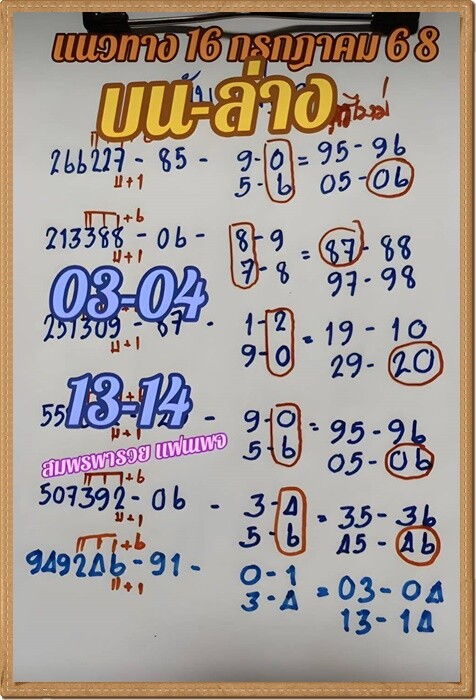 แนวทาง 16 กรกฎาคม 68
บน-ล่าง
266227 - 85 - 9-0 = 95 - 96
5-6 05 - 06
+6
п+1
213388 - 06 - 8-9 = 87 - 88
7-8 97 - 98
+6
п+1
03-04
251309 - 87 - 1-2 = 19 - 10
9-0 29 - 20
п+1
13-14
55 - 9-0 = 95 - 96
5-6 05 - 06
สมพรพารวย แฟนเพจ
507392 - 06 - 3-4 = 35 - 36
5-6 45 - 46
п+1
949246 - 91 - 0-1 = 03 - 04
3-4 13 - 14
+6
п+1